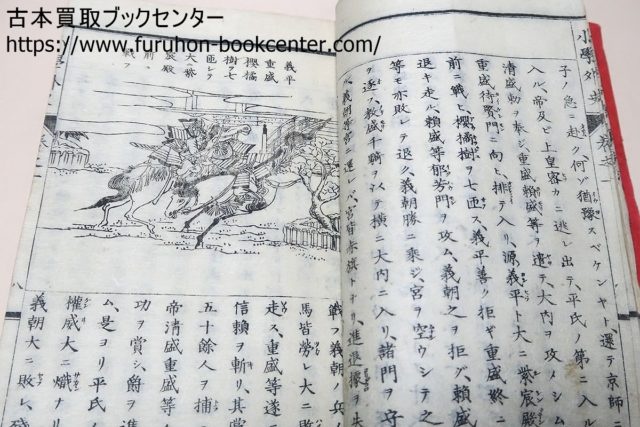 古本買取ブックセンター
https://www.furuhon-bookcenter.com/
小學外史
子ノ急ニ赴ク何ゾ猶豫スベケンヤト、還テ京師ニ
入ル、帝及ビ上皇密カニ逃レ出テ、平氏ノ第ニ入ル
清盛勅ヲ奉ジ、重盛等ヲ遣テ、大内ヲ攻メシム
重盛待賢門ニ向ヒ、排テ入リ、源義平ト大ニ紫宸殿
前ニ戰ヒ、櫻橘樹ヲ七匝ス、義平善ク拒ギ重盛終ニ
退キ走ル、頼盛等郁芳門ヲ攻ム、義朝之ヲ拒グ、頼盛
等モ亦敗レテ退ク、義朝勝ニ乗ジ、宮ヲ空ウシテ之
ヲ逐フ、教盛千騎ヲ以テ横ニ大内ニ入リ、諸門ヲ守
義朝等宮ニ還レバ、宮皆赤旗トナリ、進退據ヲ失
義平
重盛
櫻橘
樹ヲ七
匝シテ
大ニ紫
宸殿
前ニ
戰フ
戰フ義朝ノ兵
馬皆勞レ大ニ敗
走ス、重盛等遂ニ
信頼ヲ斬リ、其黨
五十餘人ヲ捕
帝清盛重盛等
功ヲ賞シ、爵ヲ進
ム、是ヨリ平氏ノ
權威大ニ熾ナリ
義朝大ニ敗レ、殘
八